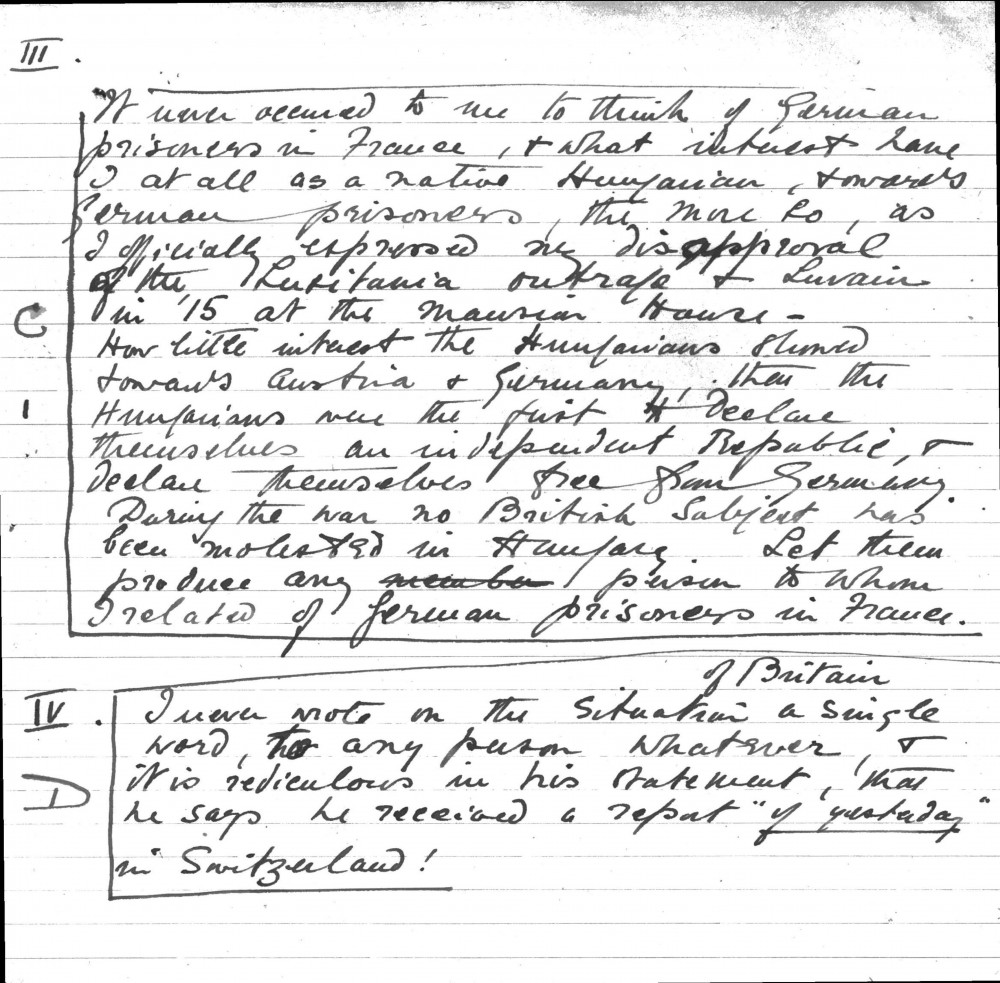 III.
It never occured to me to think of German
prisoners in France, & what interest have
I at all as a native Hungarian, towards
German prisoners, the more so, as
I officially expressed my disapproval
of the Lusitania outrage & Luvain
C
in '15 at the Mansion House -
How little interest the Hungarians showed
towards Austria & Germany, that the
Hungarians were the first to Declare
themselves an independent Republic, &
declare themselves free from Germany.
During the war no British Subject was
been molested in Hungary. Let them
produce any member person to whom
I related of German prisoners in France.
of Britain
IV. I never wrote on the Situation a single
word, to any person whatever, &
D
it is rediculous in his statement, that
he says he received a report "of yesterday"
in Switzerland!